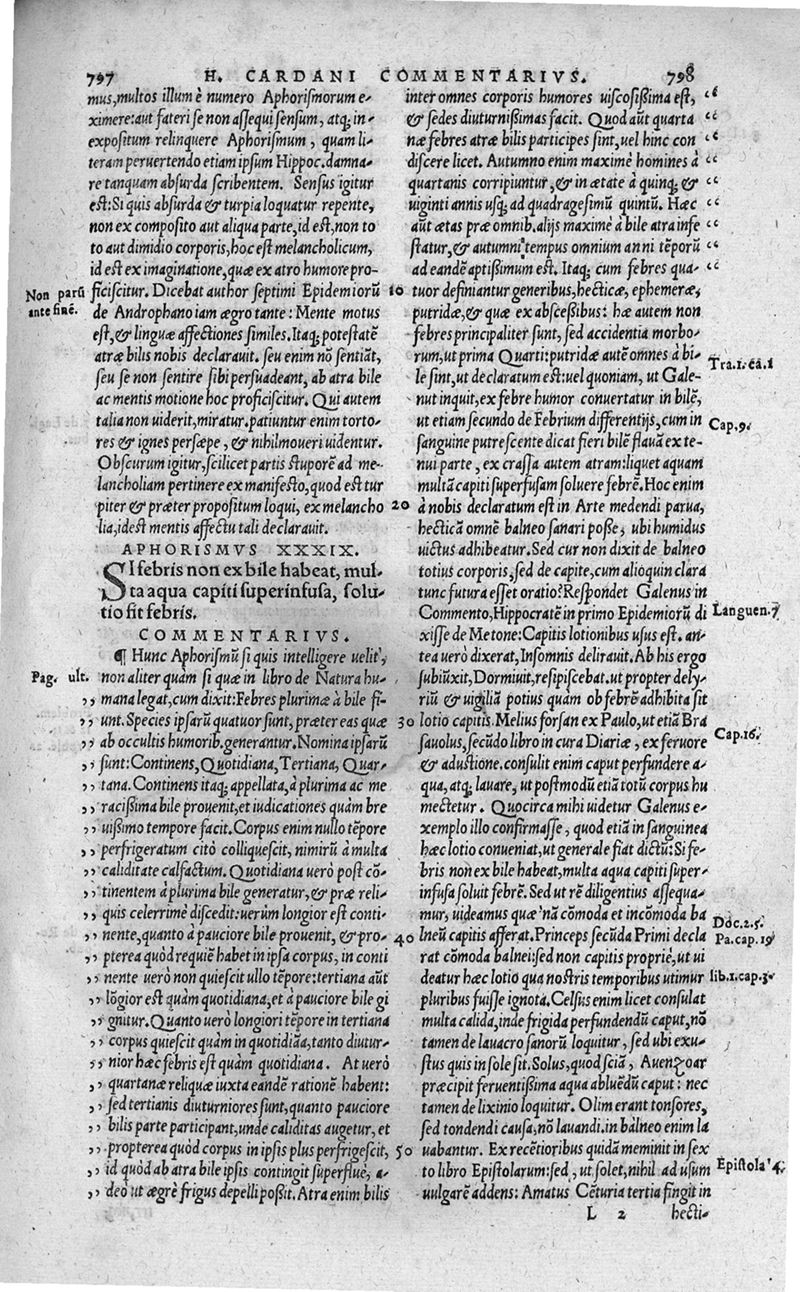 797 H. CARDANI COMMENTARIVS. 798
mus, multos illum è numero Aphorismorum e-
ximere: aut fateri se non assequi sensum, atq; in
expositum relinquere Aphorismum, quam li-
teram peruertendo etiam ipsum Hippoc. damna-
re tanquam absurda scribentem. Sensus igitur
est: Si quis absurda & turpia loquatur repente,
non ex composito aut aliqua parte, id est, non to
to aut dimidio corporis, hoc est melancholicum,
id est ex imaginatione, quæ ex atro humore pro-
Non parũ ante finẽ.
ficiscitur. Dicebat author septimi Epidemiorũ 10
de Androphano iam ægrotante: Mente motus
est, & linguæ affectiones similes. Itaq; potestatẽ
atræ bilis nobis declarauit. seu enim nõ sentiãt,
seu se non sentire sibi persuadeant, ab atra bile
ac mentis motione hoc proficiscitur. Qui autem
talia non uiderit, miratur. patiuntur enim torto-
res & ignes persæpe, & nihil moueri uidentur.
Obscurum igitur, scilicet partis stuporẽ ad me-
lancholiam pertinere ex manifesto, quod est tur
piter & præter propositum loqui, ex melancho 20
lia, id est mentis affectu tali declarauit.
APHORISMVS XXXIX.
SI febris non ex bile habeat, mul-
ta aqua capiti superinfusa, solu-
tio fit febris.
COMMENTARIVS.
¶ Hunc Aphorismũ si quis intelligere uelit,
Pag. ult.
non aliter quàm si quæ in libro de Natura hu-
,, mana legat, cum dixit: Febres plurimæ à bile fi-
,, unt. Species ipsarũ quatuor sunt, præter eas quæ 30
,, ab occultis humorib. generantur. Nomina ipsarũ
,, sunt: Continens, Quotidiana, Tertiana, Quar-
,, tana. Continens itaq; appellata, à plurima ac me
,, racissima bile prouenit, et iudicationes quàm bre
,, uissimo tempore facit. Corpus enim nullo tẽpore
,, perfrigeratum citò colliquescit, nimirũ à multa
,, caliditate calfactum. Quotidiana uerò post cõ-
,, tinentem à plurima bile generatur, & præ reli-
,, quis celerrimè discedit: uerùm longior est conti-
,, nente, quanto à pauciore bile prouenit, & pro- 40
,, pterea quòd requiẽ habet in ipsa corpus, in conti
,, nente uerò non quiescit ullo tẽpore: tertiana aũt
,, lõgior est quàm quotidiana, et à pauciore bile gi
,, gnitur. Quanto uerò longiori tẽpore in tertiana
,, corpus quiescit quàm in quotidiãa, tanto diutur-
,, nior hæc febris est quàm quotidiana. At uerò
,, quartanæ reliquæ iuxta eandẽ rationẽ habent:
,, sed tertianis diuturniores sunt, quanto pauciore
,, bilis parte participant, unde caliditas augetur, et
,, propterea quòd corpus in ipsis plus perfrigescit, 50
,, id quod ab atra bile ipsis contingit superfluè, a-
,, deò ut ægrè frigus depelli possit. Atra enim bilis
inter omnes corporis humores uiscosissima est, “
& sedes diuturnissimas facit. Quod aũt quarta “
næ febres atræ bilis participes sint, uel hinc con “
discere licet. Autumno enim maximè homines à “
quartanis corripiuntur, & in ætate à quinq; & “
uiginti annis usq; ad quadragesimũ quintũ. Hæc
aũt ætas præ omnib. alijs maximè à bile atra infe “
statur, & autumni tempus omnium anni tẽporũ “
ad eandẽ aptissimum est. Itaq; cum febres qua- “
tuor definiantur generibus, hecticæ, ephemeræ,
putridæ, & quæ ex abscessibus: hæ autem non
febres principaliter sunt, sed accidentia morbo-
rum, ut prima Quarti: putridæ autẽ omnes à bi-
Tra.1.câ.1
le sint, ut declaratum est: uel quoniam, ut Gale-
nut inquit, ex febre humor conuertatur in bilẽ,
ut etiam secundo de Febrium differentijs, cum in
Cap.9.
sanguine putrescente dicat fieri bilẽ flauã ex te-
nui parte, ex crassa autem atram: liquet aquam
multã capiti superfusam soluere febrẽ. Hoc enim
à nobis declaratum est in Arte medendi parua,
hecticã omnẽ balneo sanari posse, ubi humidus
uictus adhibeatur. Sed cur non dixit de balneo
totius corporis, sed de capite, cum alioquin clara
tunc futura esset oratio? Respondet Galenus in
Commento, Hippocratẽ in primo Epidemiorũ di
Languen.7
xisse de Metone: Capitis lotionibus usus est. an-
tea uerò dixerat, Insomnis delirauit. Ab his ergo
subiũxit, Dormiuit, resipiscebat. ut propter dely-
riũ & uigiliã potius quàm ob febrẽ adhibita sit
lotio capitis. Melius forsan ex Paulo, ut etiã Bra
Cap.16.
sauolus, secũdo libro in cura Diariæ, ex feruore
& adustione. consulit enim caput perfundere a-
qua, atq; lauare, ut postmodũ etiã totũ corpus hu
mectetur. Quocirca mihi uidetur Galenus e-
xemplo illo confirmasse, quod etiã in sanguinea
hæc lotio conueniat, ut generale fiat dictũ: Si fe-
bris non ex bile habeat, multa aqua capiti super-
infusa soluit febrẽ. Sed ut rẽ diligentius assequa-
mur, uideamus quæ'nã cõmoda et incõmoda ba
Doc.2.5.
lneũ capitis afferat. Princeps secũda Primi decla
Pa.cap.19
rat cõmoda balnei: sed non capitis propriè, ut ui
deatur hæc lotio qua nostris temporibus utimur
lib.1.cap.3.
pluribus fuisse ignota. Celsus enim licet consulat
multa calida, inde frigida perfundendũ caput, nõ
tamen de lauacro sanorũ loquitur, sed ubi exu-
stus quis in sole sit. Solus, quod sciã, Auenzoar
præcipit feruentissima aqua abluẽdũ caput: nec
tamen de lixinio loquitur. Olim erant tonsores,
sed tondendi causa, nõ lauandi. in balneo enim la
uabantur. Ex recẽtioribus quidã meminit in sex
to libro Epistolarum: sed, ut solet, nihil ad usum
Epistola 4.
uulgarẽ addens: Amatus Cẽturia tertia fingit in
L 2 hecti-